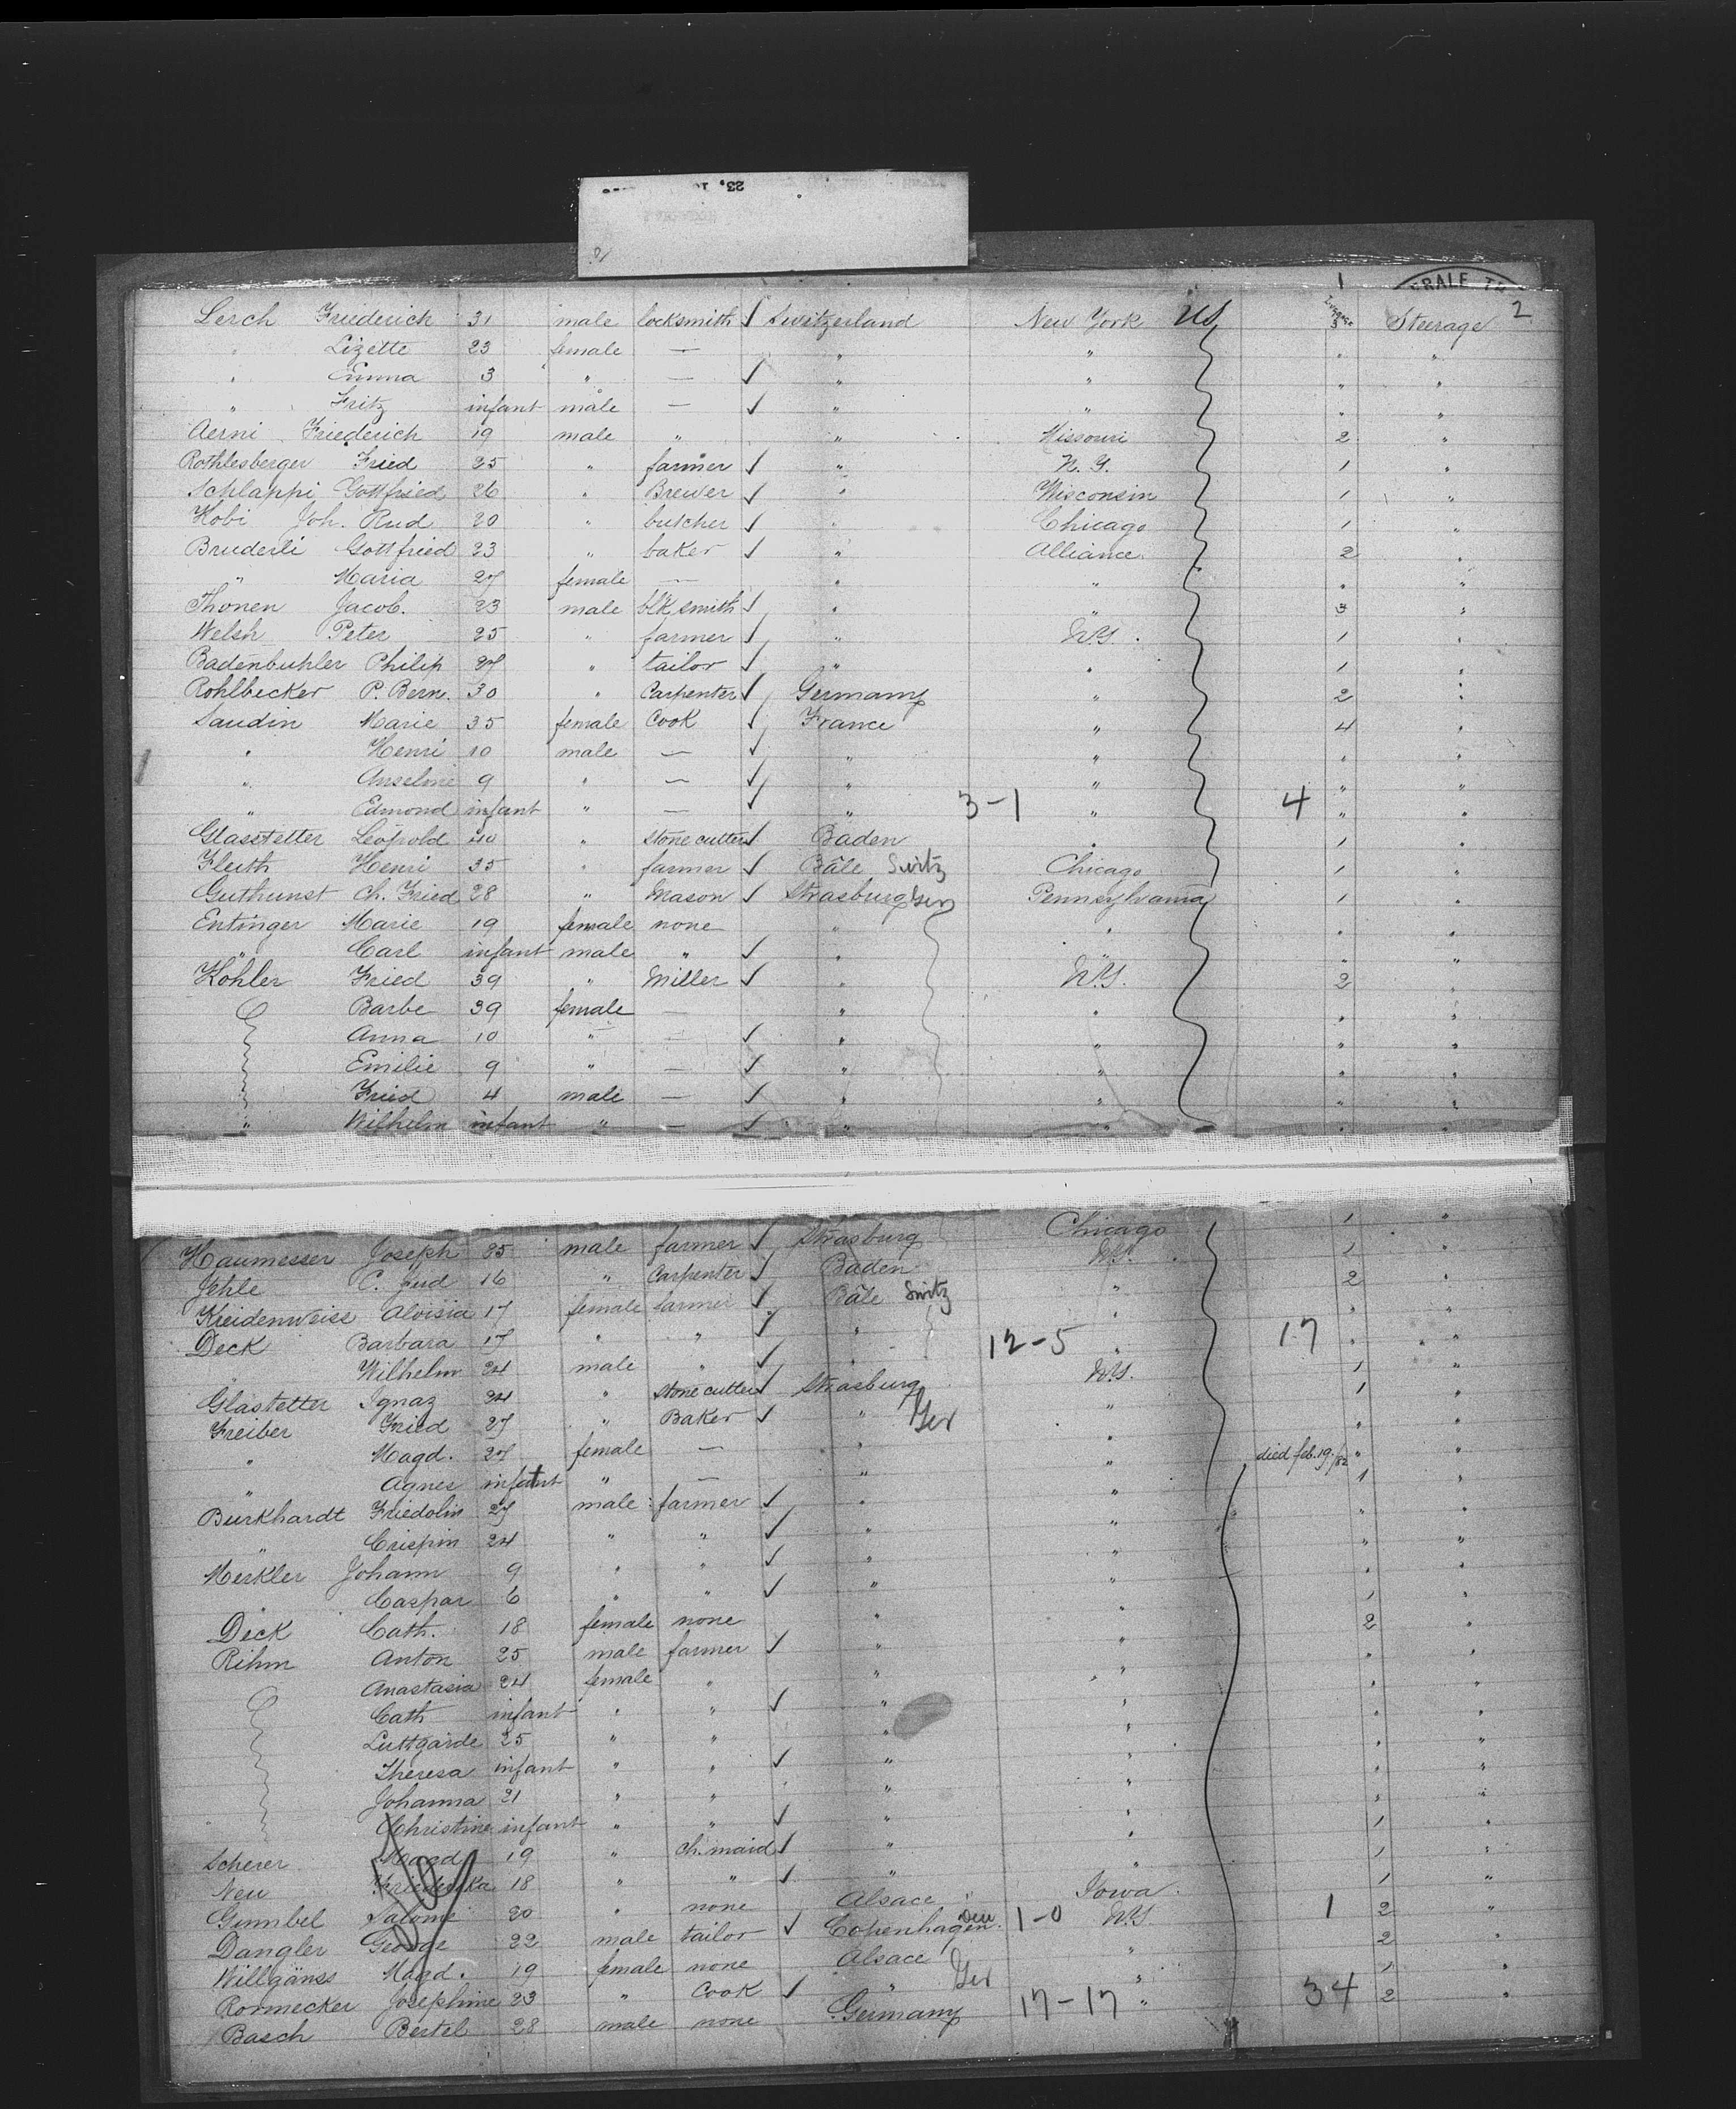 23, 10
ERALE TR
1
2
Lerch Friederich 31 male locksmith ✓ Switzerland New York US 3 Steerage
" Lizette 23 female — " " " "
" Emma 3 " — ✓ " " " "
" Fritz infant male — ✓ " " " "
Aerni Friederich 19 male " " Missouri 2 "
Rothlesberger Fried 25 " farmer ✓ " N.Y. 1 "
Schlappi Gottfried 26 " Brewer ✓ " Wisconsin 1 "
Kobi Joh. Rud 20 " butcher ✓ " Chicago 1 "
Bruderli Gottfried 23 " baker ✓ " Alliance 2 "
" Maria 27 female — " " " "
Thonen Jacob. 23 male blk smith ✓ " " 3 "
Welsh Peter 25 " farmer ✓ " N.Y. 1 "
Badenbuhler Philip 27 " tailor ✓ " " 1 "
Rohlbecker P. Bern. 30 " Carpenter ✓ Germany " 2 "
Saudin Marie 35 female Cook ✓ France " 4 "
" Henri 10 male — ✓ " " " "
" Anselme 9 " — ✓ " " " "
" Edmond infant " — ✓ " 3-1 " 4 " "
Glasstetter Leopold 40 " Stone cutter ✓ Baden " 1 "
Fleith Henri 35 " farmer ✓ Bâle Switz Chicago 1 "
Guthunst Ch. Fried 28 " Mason ✓ Strasburg Ger Pennsylvania 1 "
Entinger Marie 19 female none " " " "
" Carl infant male " ✓ " " " "
Kohler Fried 39 " Miller ✓ " N.Y. 2 "
Barbe 39 female — " " " "
Anna 10 " — ✓ " " " "
Emilie 9 " — ✓ " " " "
Fried 4 male — ✓ " " " "
" Wilhelm infant " — ✓ " " " "
Haumesser Joseph 25 male farmer ✓ Strasburg Chicago 1 "
Jehle C. Jud 16 " Carpenter ✓ Baden N.Y. 1 "
Kreidenweiss Aloisia 17 female farmer ✓ Bâle Switz " 2 "
Deck Barbara 17 " " ✓ " " " "
" Wilhelm 24 male " ✓ " 12-5 " 17 " "
Glastetter Ignaz 24 " Stone cutter ✓ Strasburg N.Y. 1 "
Freiber Fried 27 " Baker ✓ " Ger " 1 "
" Magd. 27 female — " " " "
" Agnes infant " — " " died feb. 19/82 " "
Burkhardt Friedolin 27 male farmer ✓ " " 1 "
" Crispin 24 " " ✓ " " " "
Merkler Johann 9 " " ✓ " " " "
" Caspar 6 " " ✓ " " " "
Deck Cath. 18 female none " " 1 "
Rihm Anton 25 male farmer ✓ " " 2 "
Anastasia 24 female " " " " "
Cath infant " " ✓ " " " "
Luttgarde 25 " " " " " "
Theresa infant " " ✓ " " " "
Johanna 21 " " " " " "
Christine infant " " ✓ " " " "
Scherer Magd 19 " Ch. maid ✓ " " 1 "
Neu Friederika 18 " " ✓ " " 1 "
Gumbel Salome 20 " none Alsace Iowa 1 "
Dangler George 22 male tailor ✓ Copenhagen Den 1-0 N.Y. 1 2 "
Willgänss Magd. 19 female none Alsace " 2 "
Ronnecker Josephine 23 " Cook ✓ " Ger " 1 "
Basch Bertel 28 male none Germany 17-17 " 34 2 "